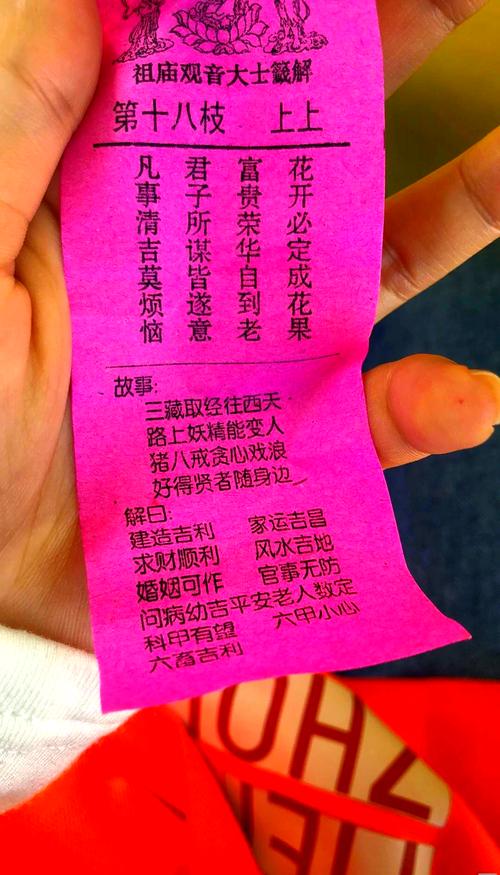 祖庙观音大士籤解
第十八枝 上上
花开必定成花果
富贵荣华自到老
君子所谋皆遂意
凡事清吉莫烦恼
故事:
三藏取经往西天
路上妖精能变人
猪八戒贪心戏浪
好得贤者随身边
解曰:
建造吉利 家运吉昌
求财顺利 风水吉地
婚姻可作 官事无防
问病幼吉平安老人数定
科甲有望 六甲小心
六畜吉利